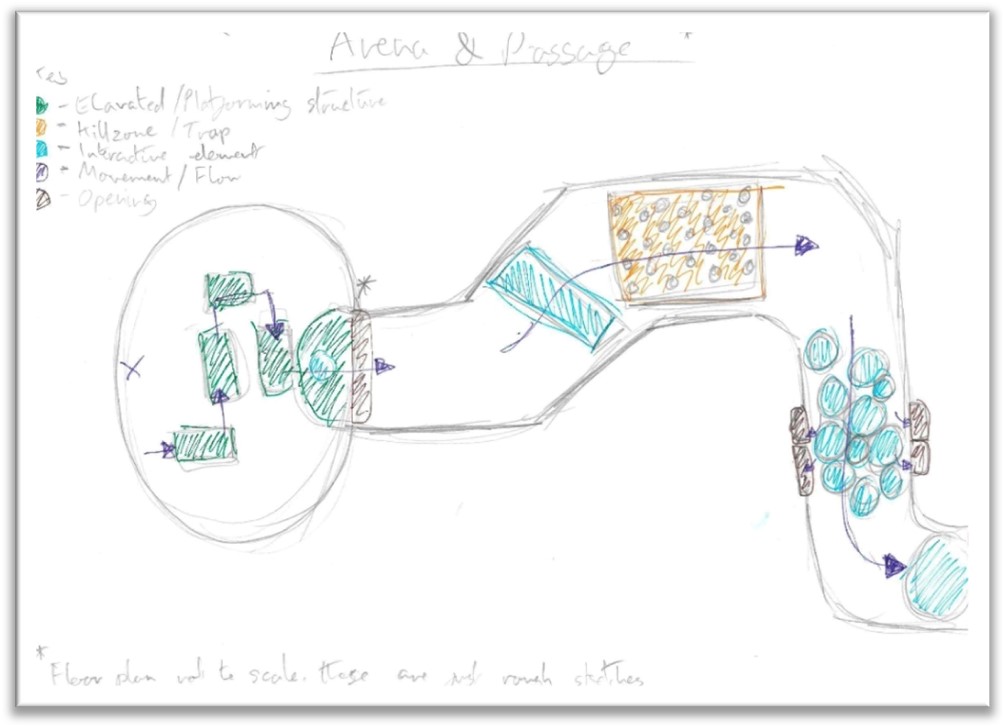 Arena & Passage *
Key
- Elavated/Platforming structure
- Killzone / Trap
- Interactive element
- Movement/Flow
- Opening
*
X
* Floor plan not to scale. these are just rough sketches